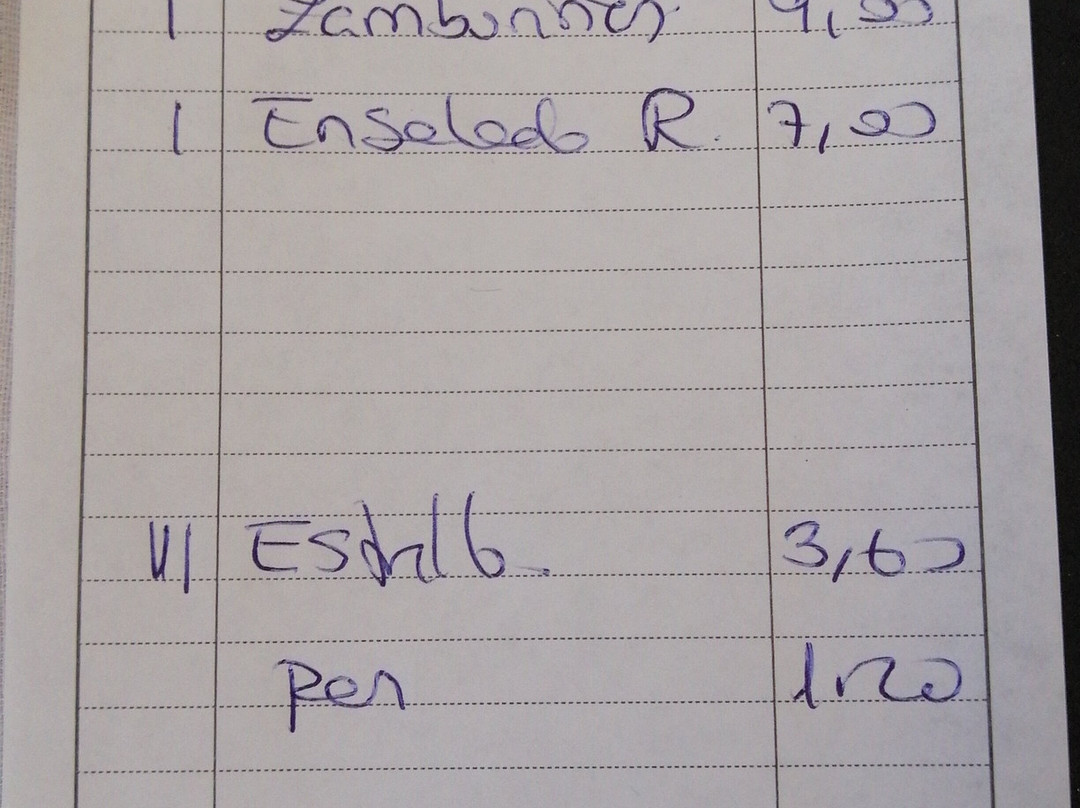 1 Zamburiñas 9,00
1 Ensalada R. 7,00
III Estrall6. 3,60
pan 1,20